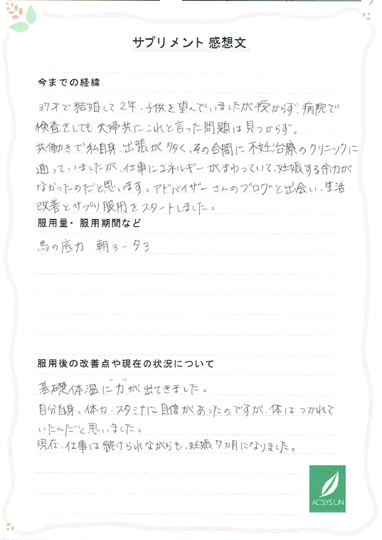 サプリメント 感想文
今までの経緯
37才で結婚して2年、子供を望んでいましたが授からず、病院で
検査をしても夫婦共にこれと言った問題は見つからず。
共働きで私自身、出張が多く、その合間に不妊治療のクリニックに
通っていましたが、仕事にエネルギーがまわっていて、妊娠する余力が
なかったのだと思います。アドバイザーさんのブログと出会い、生活
改善とサプリ服用をスタートしました。
服用量・服用期間など
馬の底力 朝3-夕3
服用後の改善点や現在の状況について
基礎体温に"力"が出てきました。
自分自身、体力・スタミナに自信があったのですが、体はつかれて
いたんだと思いました。
現在、仕事は続けられながらも、妊娠7カ月になりました。
ACSYS UN